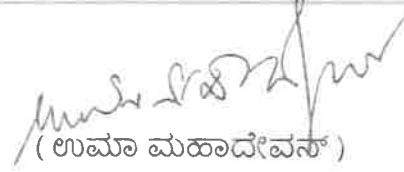 ( ಉಮಾ ಮಹಾದೇವನ್ )